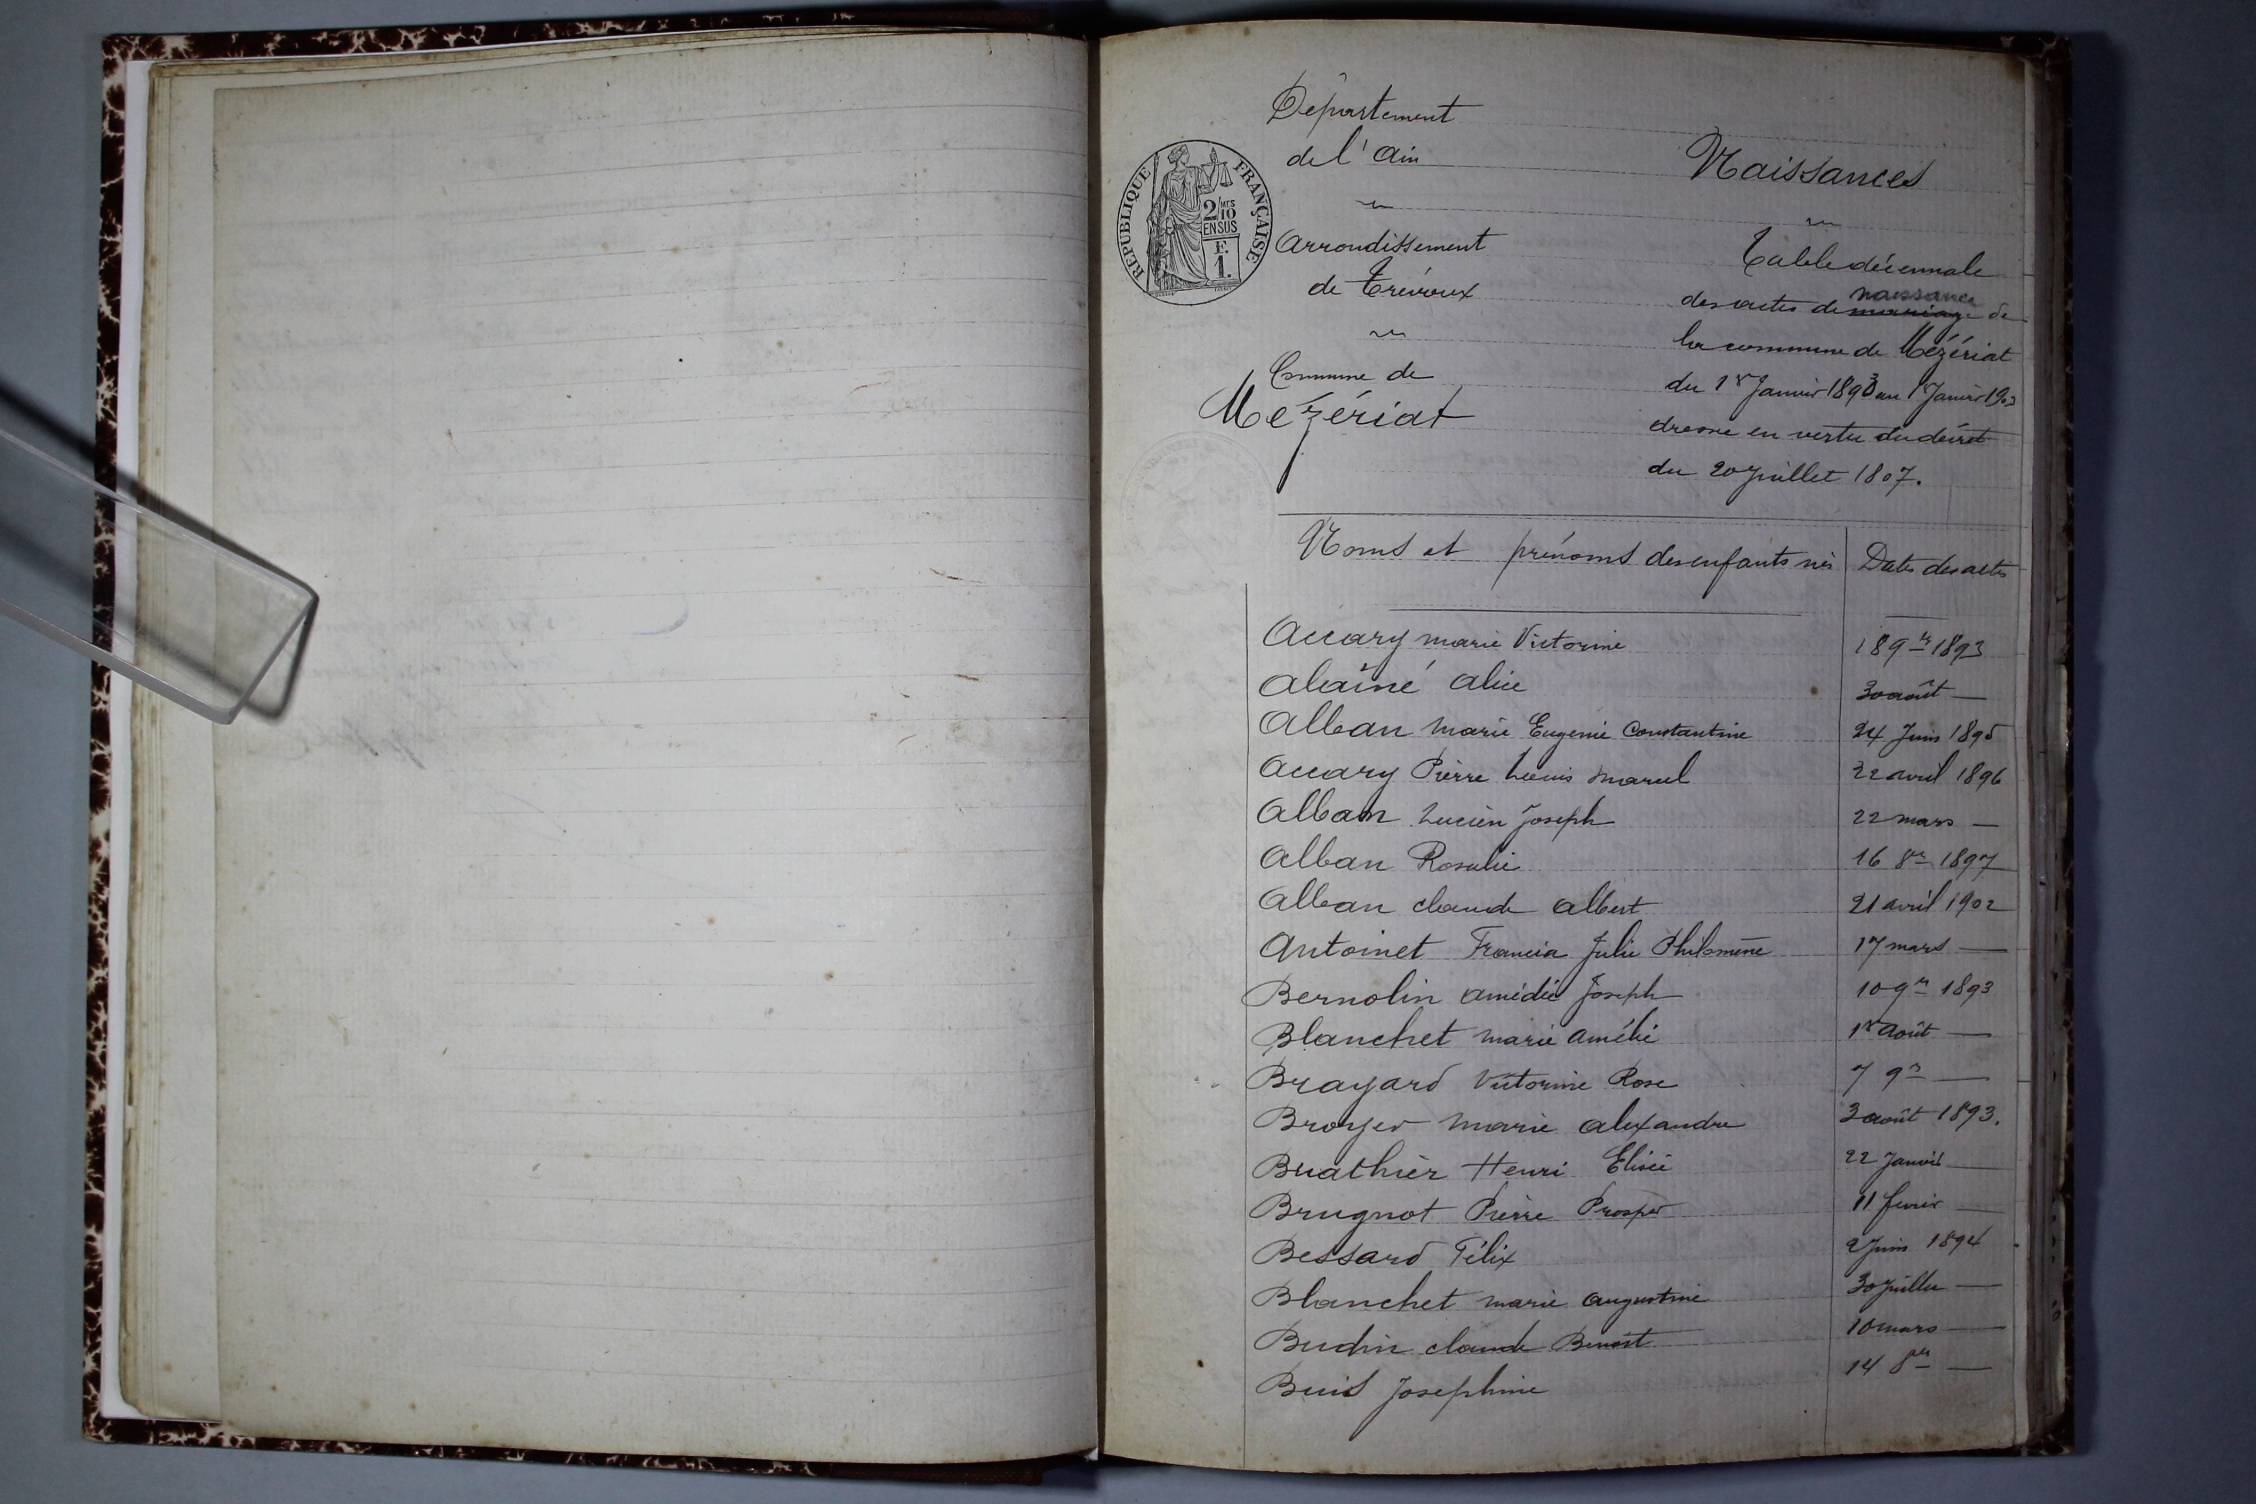 Département
de l'Ain
Arrondissement
de Trévoux
Commune de
Mézériat
RÉPUBLIQUE FRANÇAISE
2/10 MES
EN SUS
F.
1.
Naissances
Table décennale
des actes de mariage naissance de
la commune de Mézériat
du 1er Janvier 1893 au 1er Janvier 1903
dressée en vertu du décret
du 20 Juillet 1807.
Noms et prénoms des enfants nés | Dates des actes
Accary marie Victorine 18 9re 1893
Alaîné Alice 30 août —
Alban Marie Eugénie Constantine 24 Juin 1895
Accary Pierre Louis Marcel 22 avril 1896
Alban Lucien Joseph 22 mars —
Alban Rosalie 16 8re 1897
Alban claude Albert 21 avril 1902
Antoinet Francia Julie Philomène 17 mars —
Bernolin Amédée Joseph 10 9re 1893
Blanchet Marie Amélie 1er août —
Brayard Victorine Rose 7 9re —
Broyer Marie Alexandre 3 août 1893.
Buathier Henri Elisée 22 Janvier —
Brugnot Pierre Prosper 11 février —
Bessard Félix 2 Juin 1894
Blanchet Marie Augustine 30 Juillet —
Budin claude Benoît 10 mars —
Buis Joséphine 14 8re —